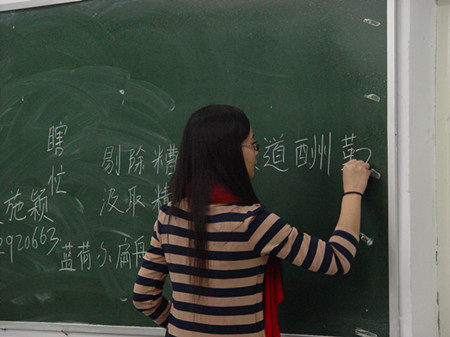 瞎 剔除糟 道酬
位 汲取精
施颖
2920663 蓝荷小扁舟